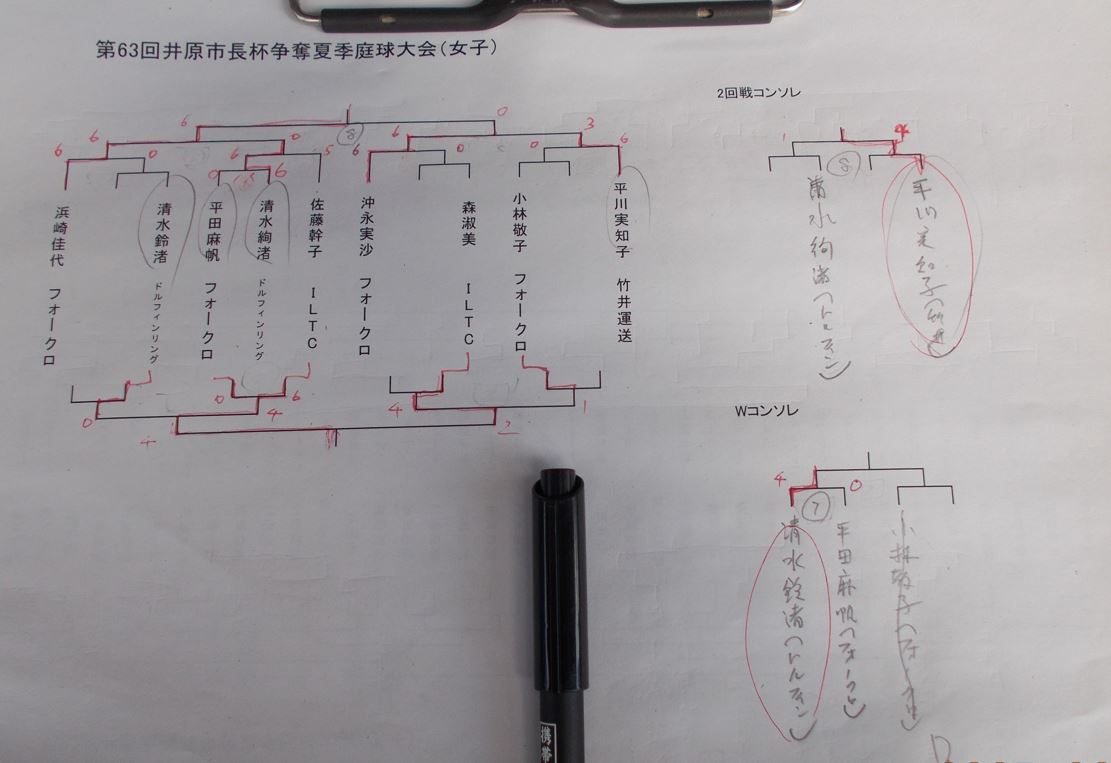 第63回井原市長杯争奪夏季庭球大会(女子)
2回戦コンソレ
6
1
0
6
0
8
6
3
6
0
6
5
6
0
0
6
0
6
浜崎佳代 フォークロ
清水鈴渚 ドルフィンリング
平田麻帆 フォークロ
清水絢渚 ドルフィンリング
佐藤幹子 ILTC
沖永実沙 フォークロ
森淑美 ILTC
小林敬子 フォークロ
平川実知子 竹井運送
1
4
8
清水絢渚(ドルフィン)
平川実知子(竹井)
0
6
0
4
4
1
4
2
Wコンソレ
4
0
7
清水鈴渚(ドルフィン)
平田麻帆(フォークロ)
小林敬子(フォークロ)
携帯